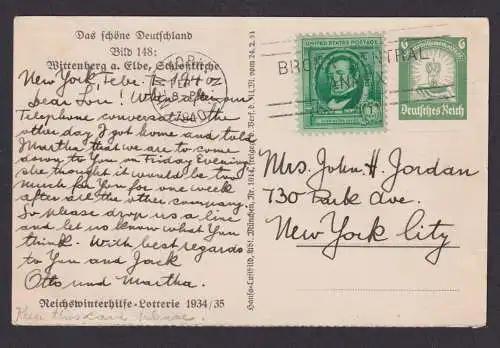 Das schöne Deutschland
Bild 148:
Wittenberg a. Elbe, Schloßkirche
New York, Febr.
Dear Lou! When after our
Telephone conversation the
other day I got home and told
Martha that we are to come
down to You on Friday Evening
she thought it would be too
much for You for one week
after all the other company.
So please drop us a line
and let us know what You
think. With best regards
to You and Jack
Otto und Martha.
Reichswinterhilfe-Lotterie 1934/35
UNITED STATES POSTAGE
1¢
BRONX CENTRAL
ANNEX
6
Deutsches Reich
Mrs. John. H. Jordan
730 Park Ave.
New York City